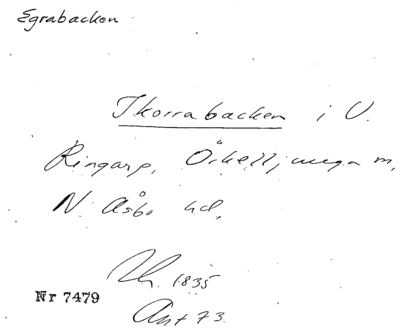 Egrabacken
Ikorrabacken i V.
Ringarp, Örkelljunga m,
N. Åsbo hd,
1835
Nr 7479
Ant 73.